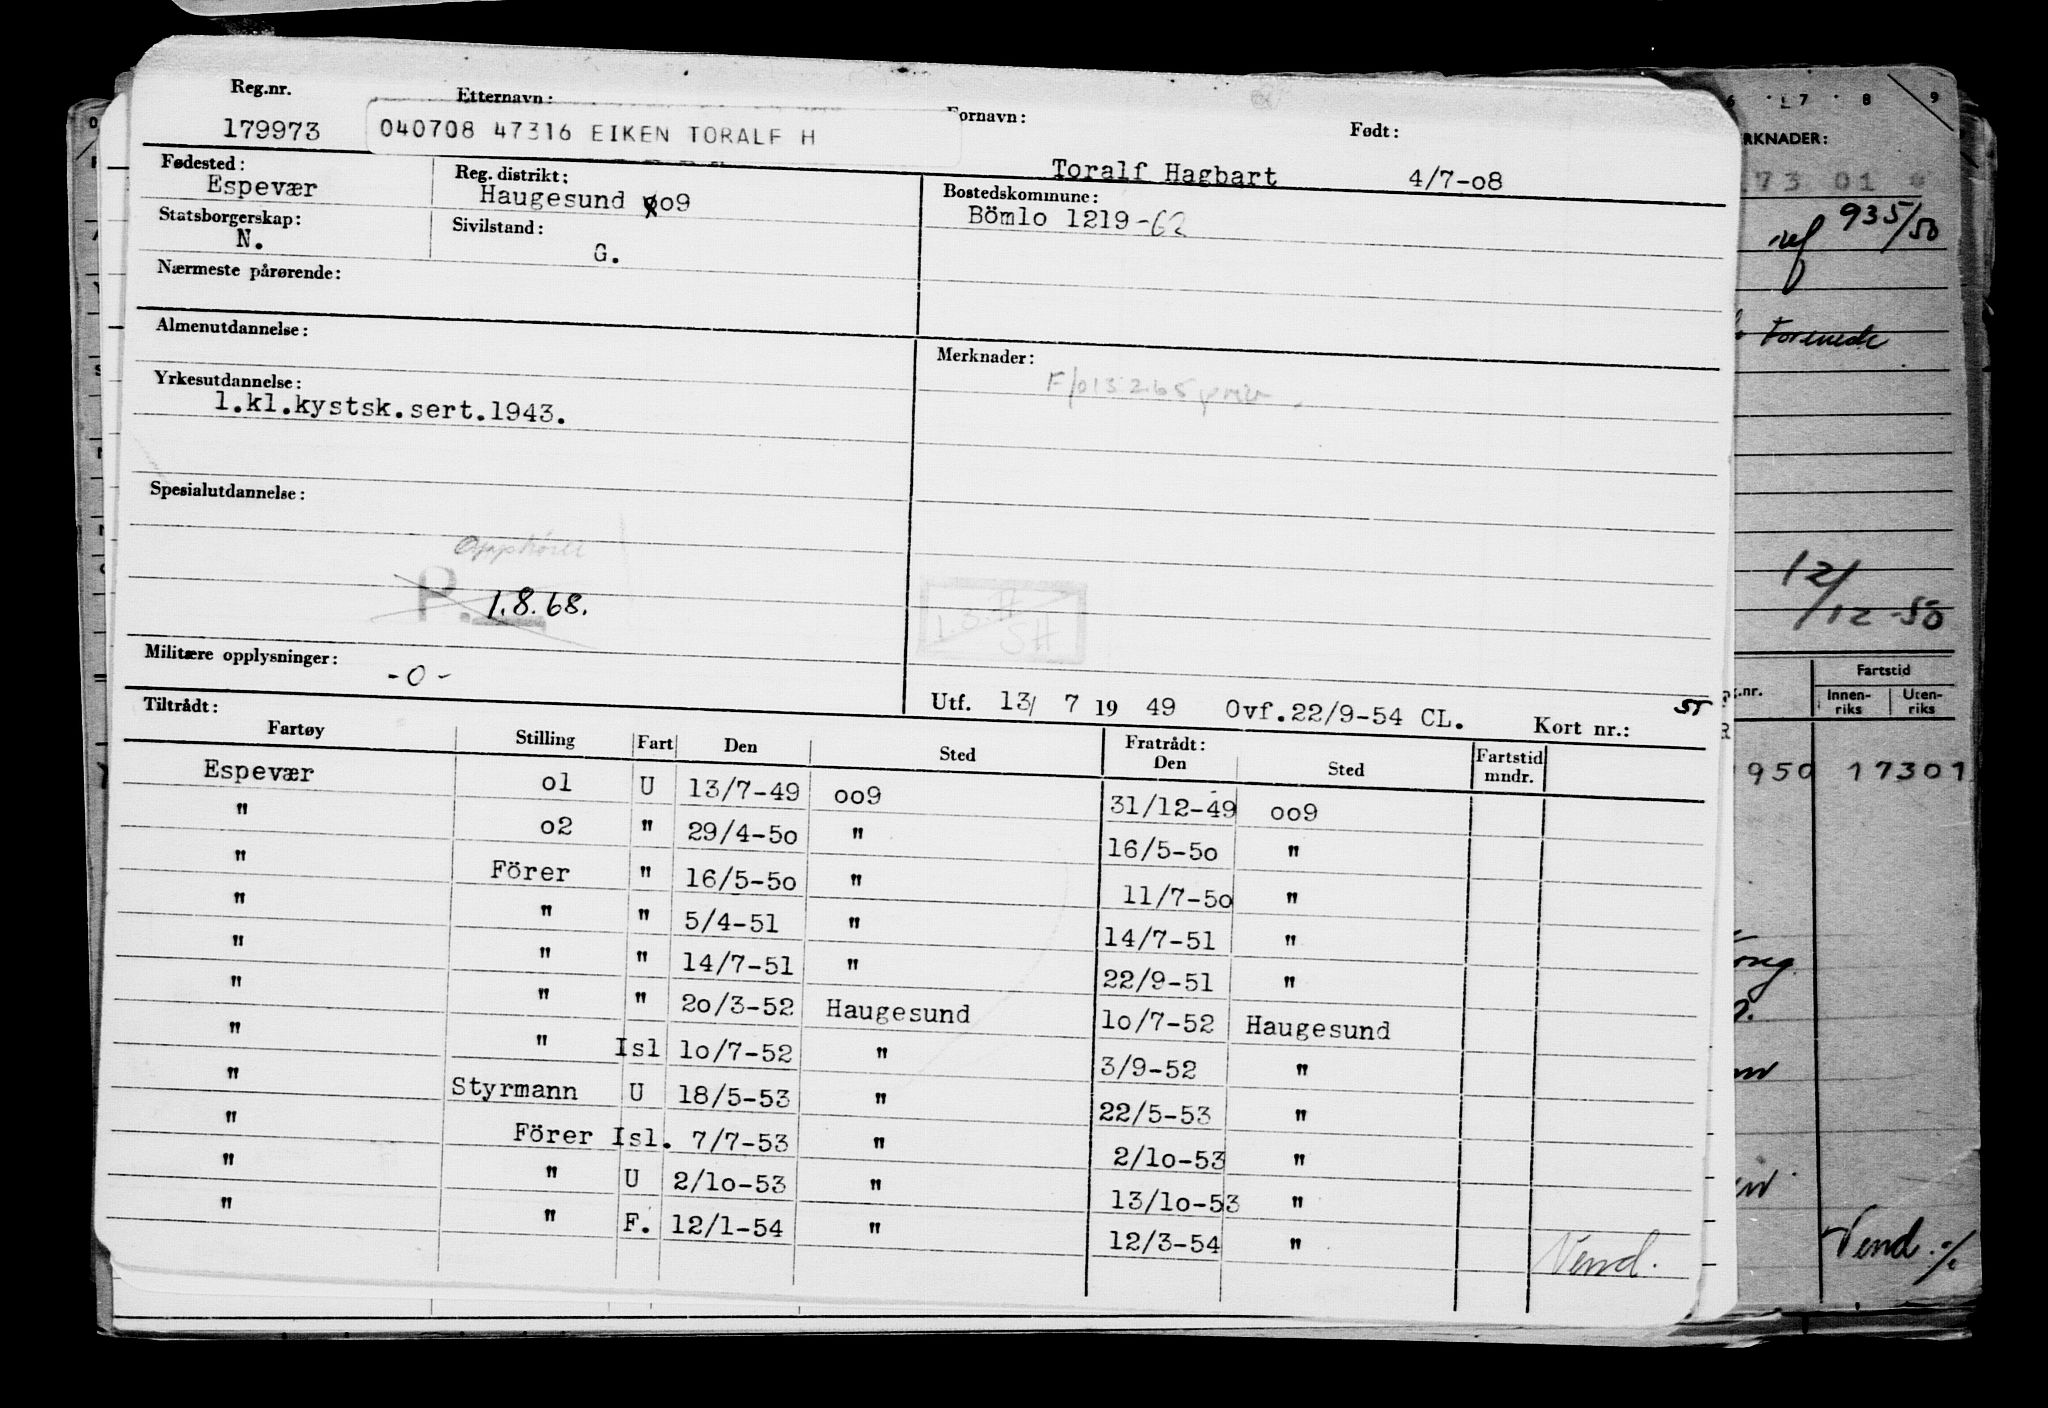 Reg.nr. Etternavn: Fornavn: Født:
179973 040708 47316 EIKEN TORALF H Toralf Hagbart 4/7-o8
Fødested: Reg. distrikt: Bostedskommune:
Espevær Haugesund oo9 Bömlo 1219-62
Statsborgerskap: Sivilstand:
N. G.
Nærmeste pårørende:
Almenutdannelse: Merknader:
Yrkesutdannelse:
1.kl.kystsk.sert.1943.
Spesialutdannelse:
P. 1.8.68.
Militære opplysninger:
-0-
Utf. 13/ 7 19 49 Ovf.22/9-54 CL. Kort nr.:
Tiltrådt: Fratrådt:
Fartøy Stilling Fart Den Sted Den Sted Fartstid mndr.
Espevær o1 U 13/7-49 oo9 31/12-49 oo9
" o2 " 29/4-5o " 16/5-5o "
" Förer " 16/5-5o " 11/7-5o "
" " " 5/4-51 " 14/7-51 "
" " " 14/7-51 " 22/9-51 "
" " " 2o/3-52 Haugesund 1o/7-52 Haugesund
" " Isl 1o/7-52 " 3/9-52 "
" Styrmann U 18/5-53 " 22/5-53 "
" Förer Isl. 7/7-53 " 2/1o-53 "
" " U 2/1o-53 " 13/1o-53 "
" " F. 12/1-54 " 12/3-54 "
Vend.
7 8 9
RKNADER:
73 01
935/50
Forenede
12/12-50
.nr. Fartstid
Innen-riks Uten-riks
950 17301
Vend. %